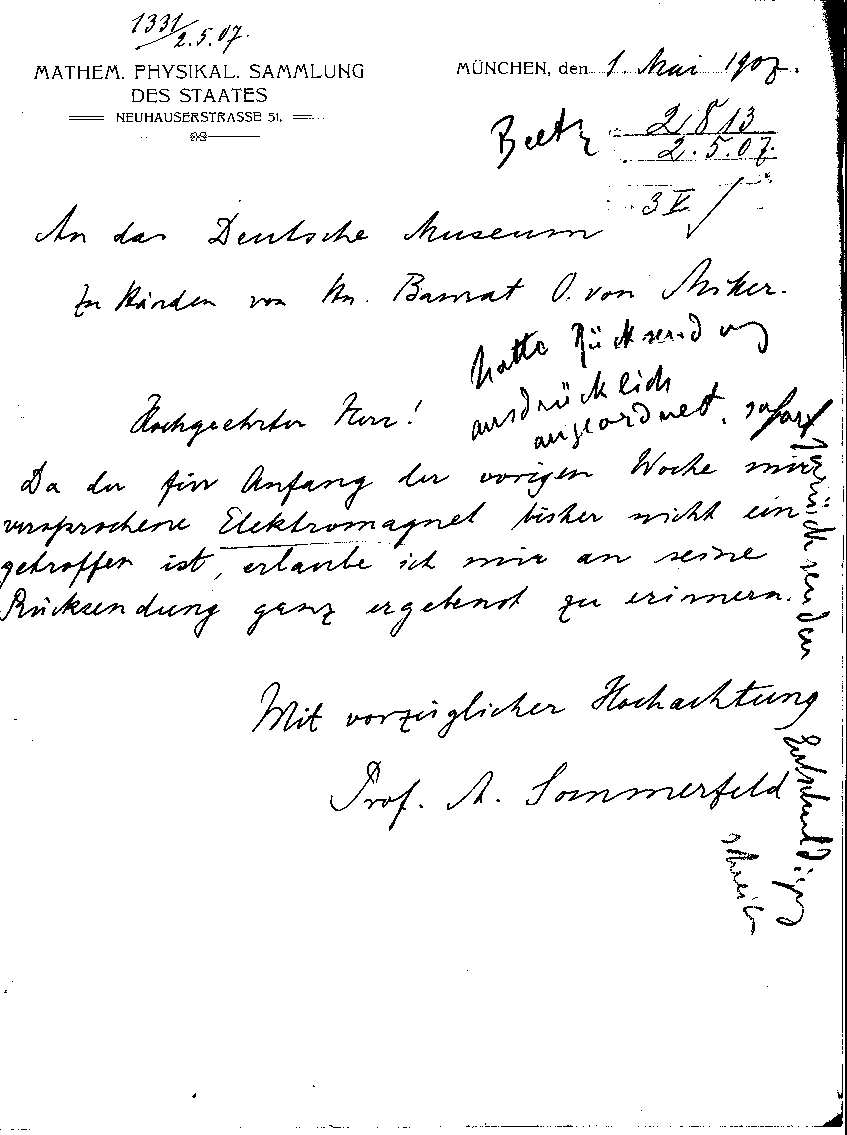 1331/2.5.07.
MATHEM. PHYSIKAL. SAMMLUNG
DES STAATES
NEUHAUSERSTRASSE 51.
MÜNCHEN, den 1. Mai 1907.
2813
2.5.07.
3 V
An das Deutsche Museum
zu Händen von Hn. Baurat O. von Miller.
hatte Rücksendung
ausdrücklich
angeordnet, sofort
zurücksenden
Entschuldigung
schreiben
Hochgeehrter Herr!
Da der für Anfang der vorigen Woche mir
versprochene Elektromagnet bisher nicht ein
getroffen ist, erlaube ich mir an seine
Rücksendung ganz ergebenst zu erinnern.
Mit vorzüglicher Hochachtung
Prof. A. Sommerfeld